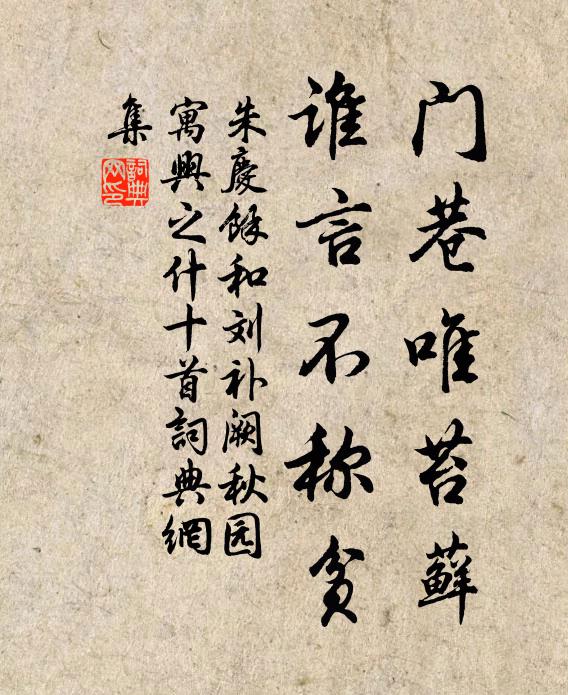 门巷唯苔藓
谁言不称贫
朱慶餘和刘补阙秋园
寓興之什十首詞典網
集
詞典网印